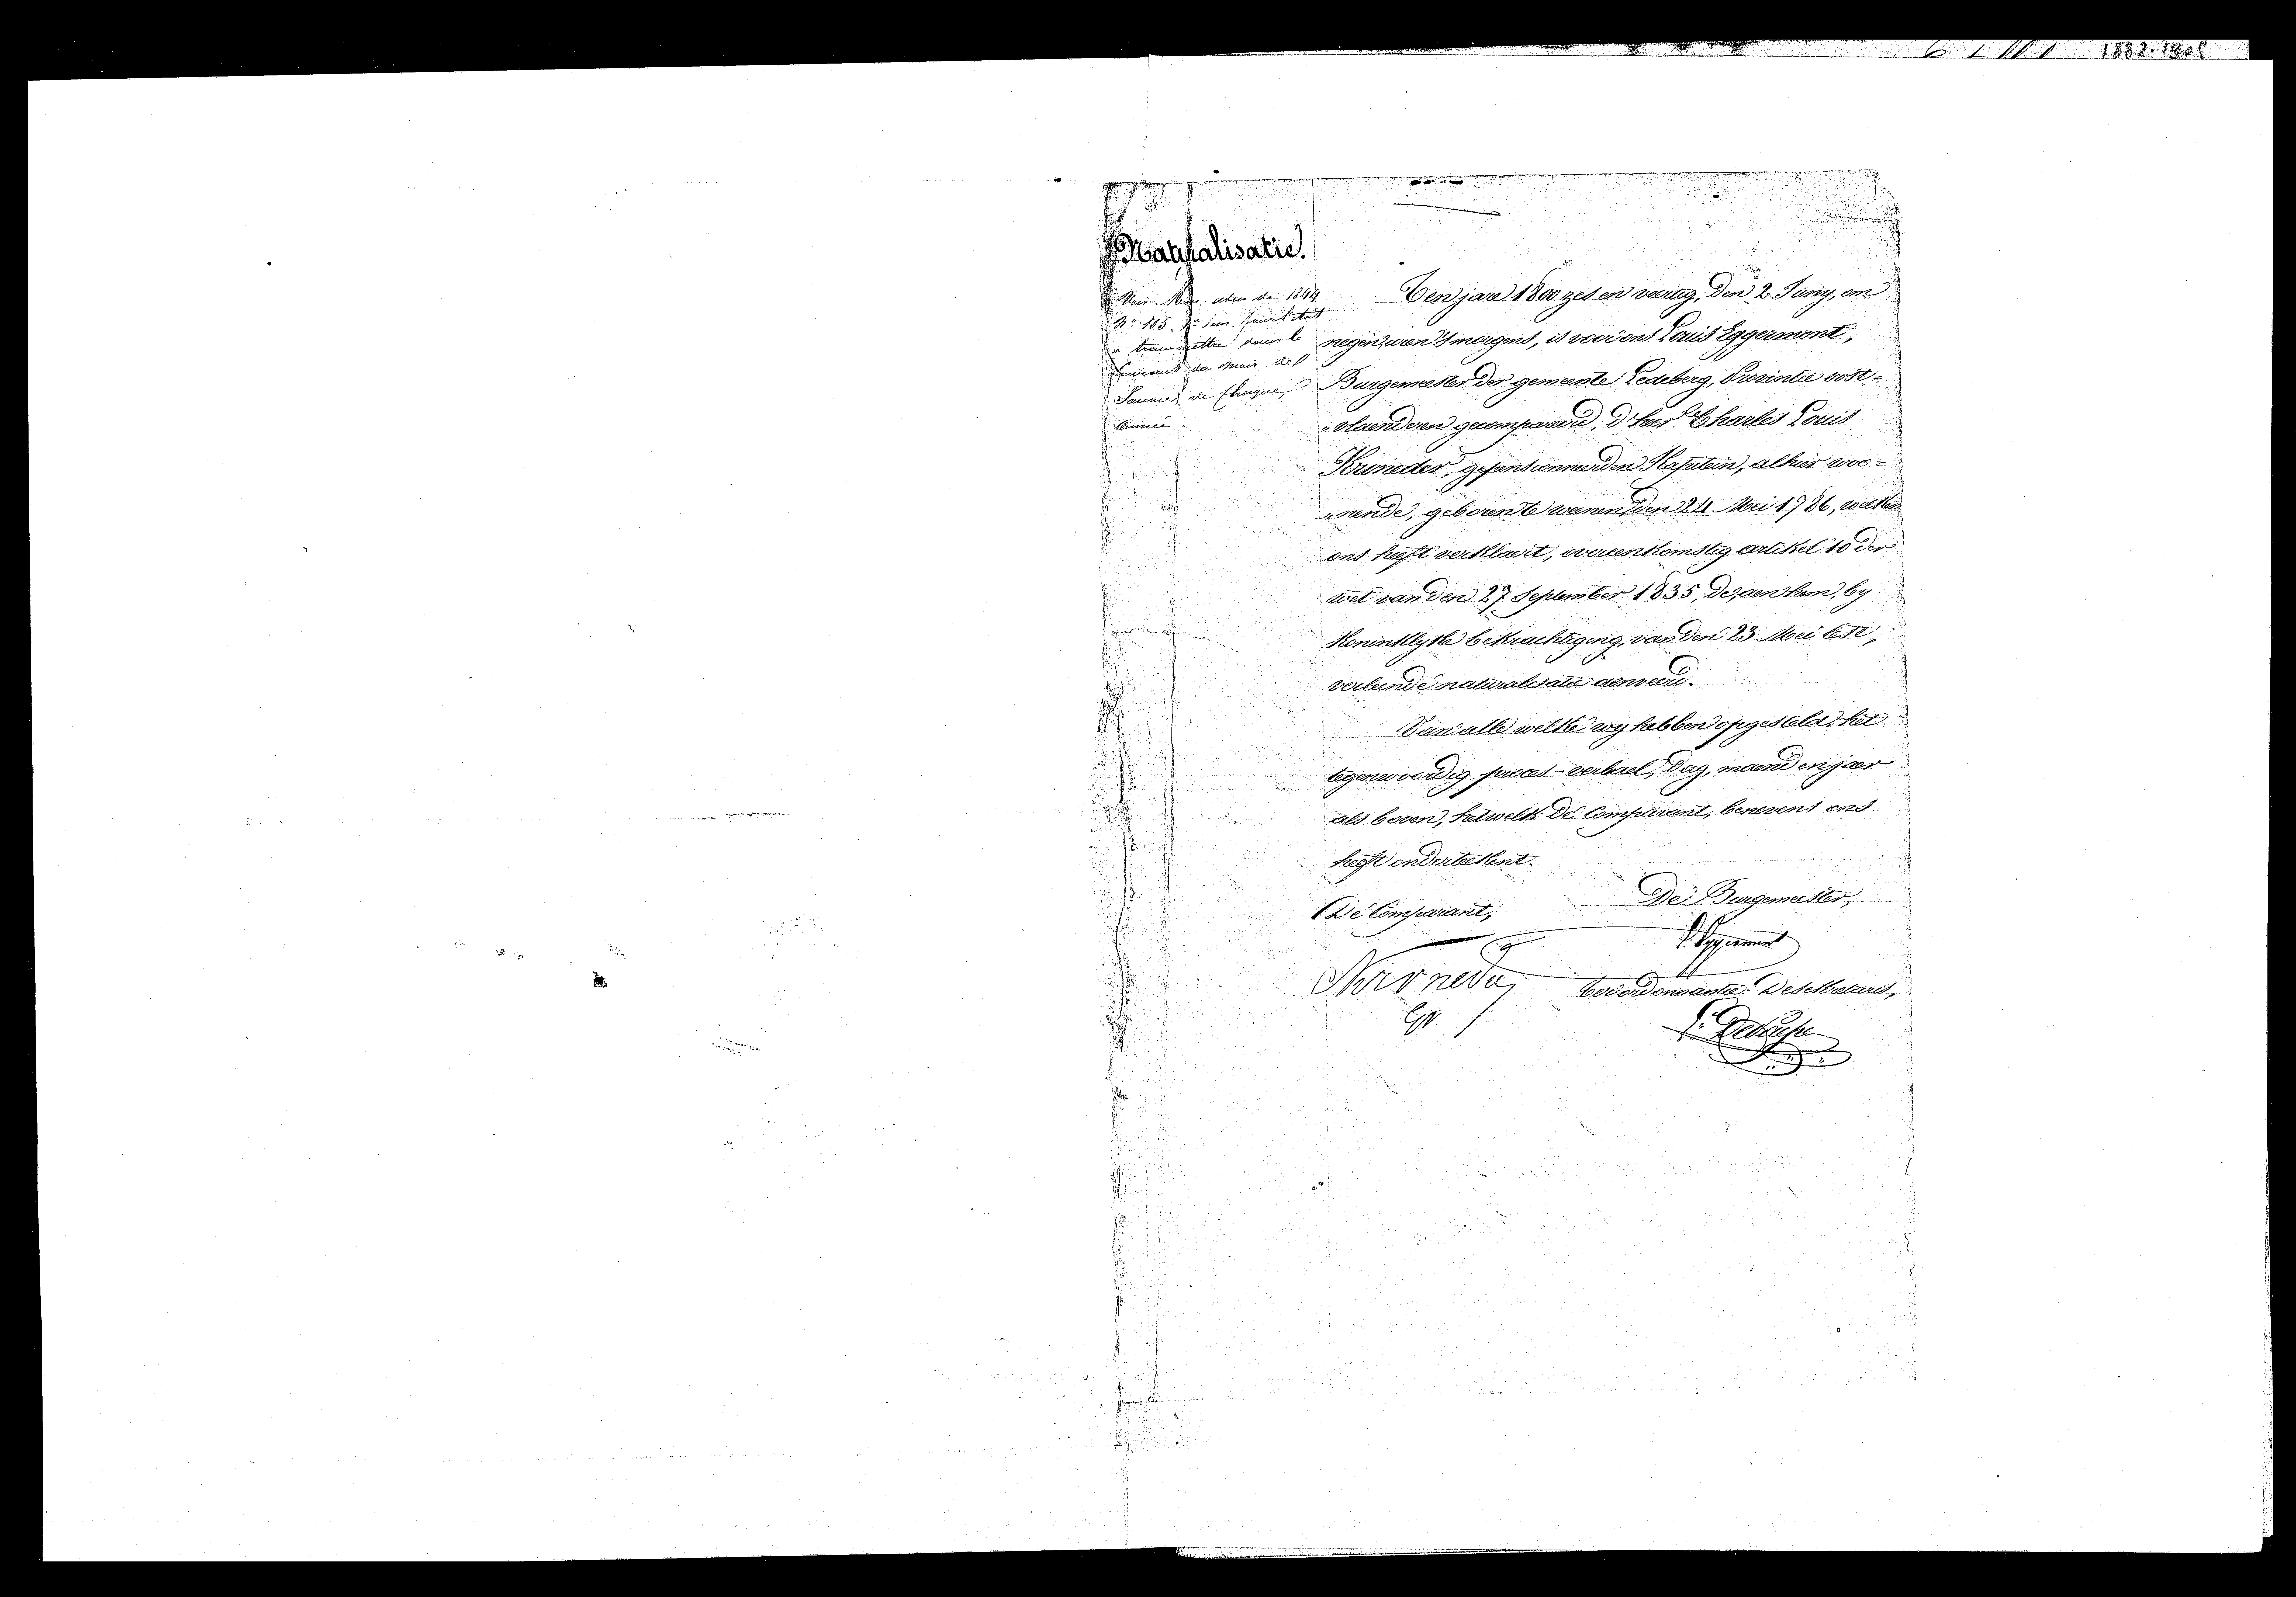 1882-1905
Naturalisatie.
Voir adm. de 1844
N° 105. 1er Sem. pour l'état
à transmettre pour le
du mois de
Janvier de chaque
année
Ten jare 1800 zes en veertig, den 2 Juny, om
negen uren 's morgens, is voor ons Louis Eggermont,
Burgemeester der gemeente Ledeberg, Provintie oost-
„vlaenderen gecompareerd, d'heer Charles Louis
Kroneder, gepensionneerden Kapitein, alhier woo=
„nende, geboren te weenen, den 24 Mei 1786, welken
ons heeft verklaert, overeenkomstig artikel 10 der
wet van den 27 September 1835, de, aen hem, by
Koninklyke bekrachtiging, van den 23 Mei lest,
verleende naturalisatie aenveerd.
Van alle welke wy hebben opgesteld het
tegenwoordig proces-verbael, dag, maend en jaer
als boven, hetwelk de Comparant, benevens ons
heeft onderteekent.
De Comparant,
De Burgemeester,
L. Eggermont
Kroneder
Ter ordonnantie: De Sekretaris,